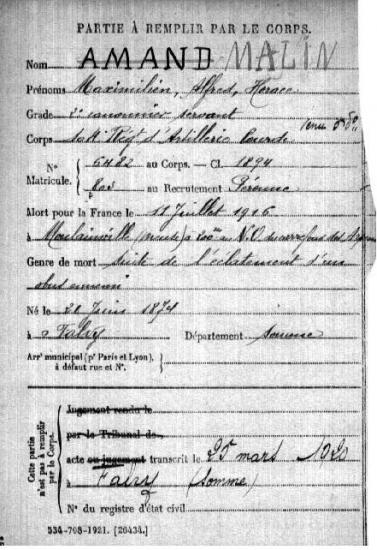 PARTIE À REMPLIR PAR LE CORPS.
Nom AMAND MALIN
Prénoms Maximilien, Alfred, Horace
Grade 2e canonnier servant
Corps Rég d'Artillerie Lourde
N° Matricule. { 6482 au Corps. — Cl. 1894
803 au Recrutement Péronne
Mort pour la France le 11 Juillet 1916
à Moulainville (Meuse) à 200m au N.O. du carrefour des
Genre de mort suite de l'éclatement d'un
obus ennemi
Né le 20 Juin 1874
à Falvy Département Somme
Arrt municipal (pr Paris et Lyon), à défaut rue et N°.
Cette partie n'est pas à remplir par le Corps.
Jugement rendu le
par le Tribunal de
acte ou jugement transcrit le 25 mars 1920
à Falvy (Somme)
N° du registre d'état civil
534-708-1921. [26434.]